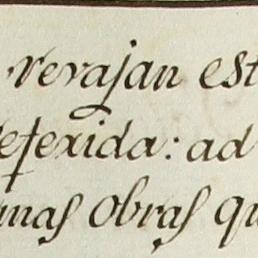 revajan est
referida: ad
mas obras qu